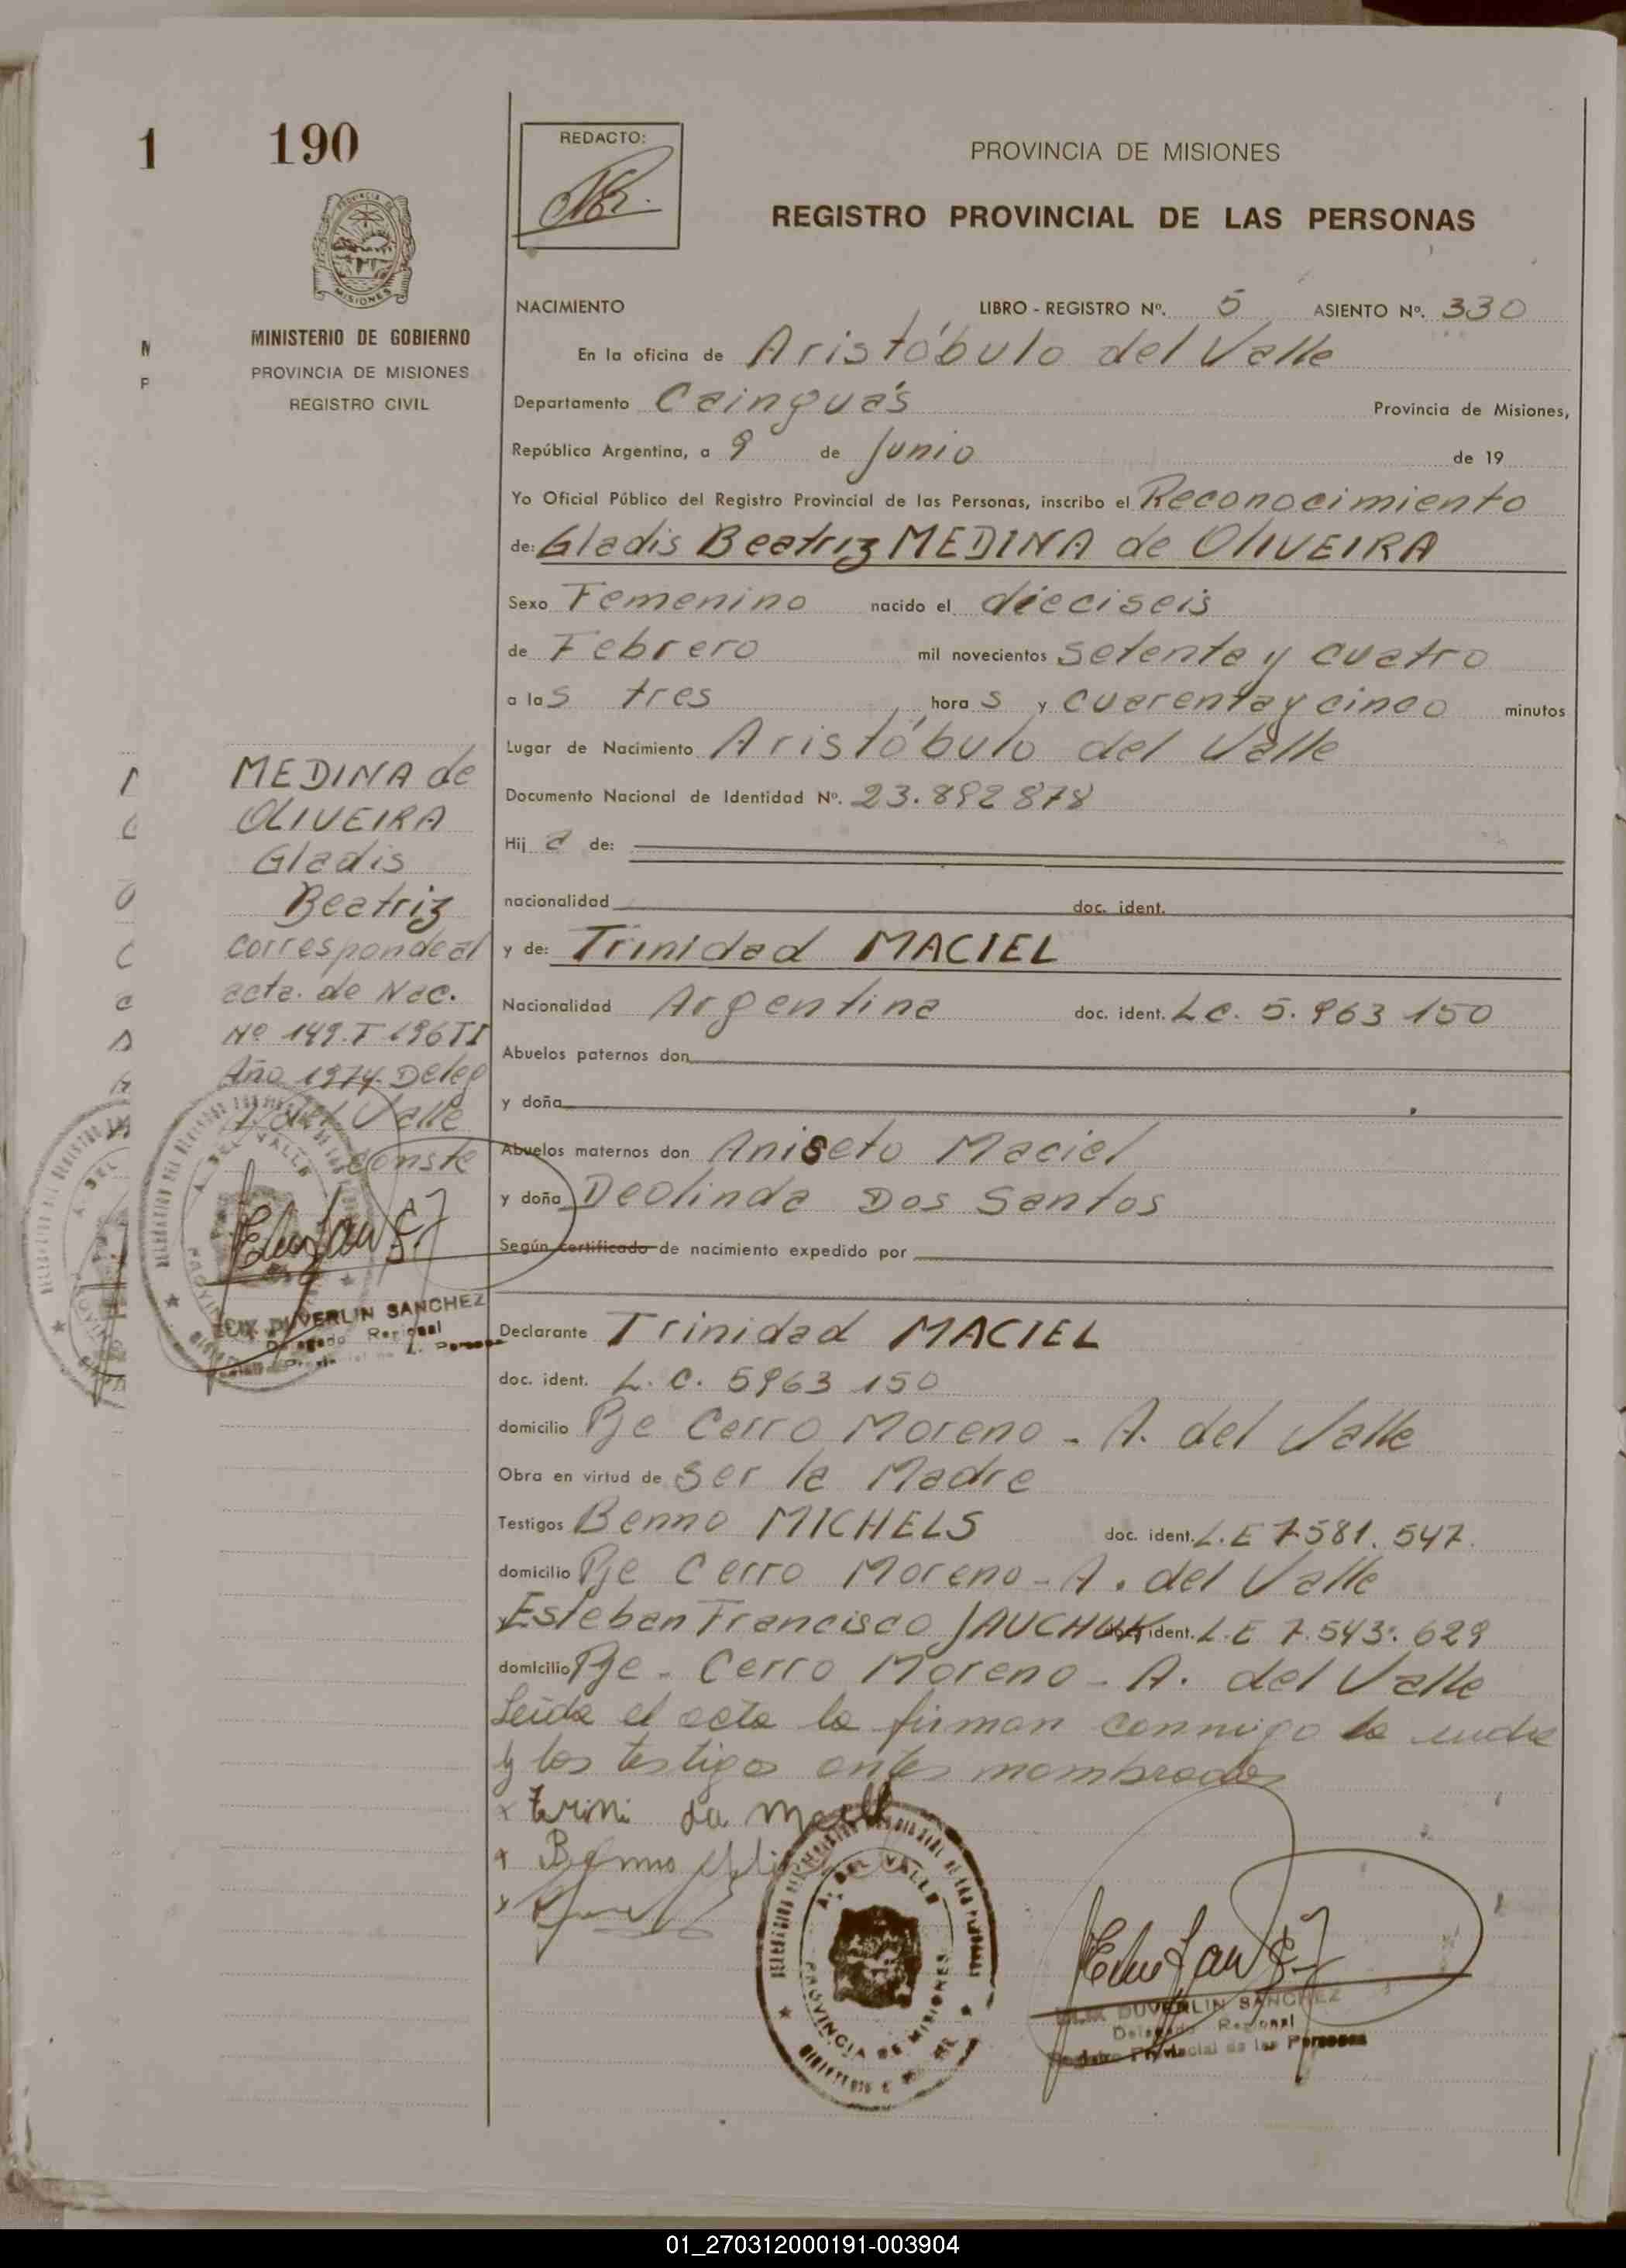 1 190
REDACTO:
PROVINCIA DE MISIONES
REGISTRO PROVINCIAL DE LAS PERSONAS
MINISTERIO DE GOBIERNO
PROVINCIA DE MISIONES
REGISTRO CIVIL
NACIMIENTO LIBRO - REGISTRO Nº. 5 ASIENTO Nº. 330
En la oficina de Aristóbulo del Valle
Departamento Cainguás Provincia de Misiones,
República Argentina, a 9 de Junio de 19
Yo Oficial Público del Registro Provincial de las Personas, inscribo el Reconocimiento
de: Gladis Beatriz MEDINA de OLIVEIRA
Sexo Femenino nacido el dieciseis
de Febrero mil novecientos setenta y cuatro
a las tres horas y cuarenta y cinco minutos
Lugar de Nacimiento Aristóbulo del Valle
Documento Nacional de Identidad Nº. 23.892878
Hija de:
nacionalidad doc. ident.
y de: Trinidad MACIEL
Nacionalidad Argentina doc. ident. L.C. 5.963 150
Abuelos paternos don
y doña
Abuelos maternos don Aniseto Maciel
y doña Deolinda Dos Santos
Según certificado de nacimiento expedido por
Declarante Trinidad MACIEL
doc. ident. L. C. 5963 150
domicilio Pje Cerro Moreno - A. del Valle
Obra en virtud de ser la Madre
Testigos Benno MICHELS doc. ident. L.E 7.581.547.
domicilio Pje Cerro Moreno - A. del Valle
y Esteban Francisco JAUCHUK doc. ident. L.E 7.543.629
domicilio Pje - Cerro Moreno - A. del Valle
Leida el acta la firman conmigo la madre
y los testigos antes nombrados
MEDINA de
OLIVEIRA
Gladis
Beatriz
corresponde al
acta. de Nac.
Nº 149.T 196 TI
Año 1974. Deleg
A. del Valle
conste
DUVERLIN SANCHEZ
Delegado Regional
x Benno
A. DEL VALLE
PROVINCIA DE MISIONES
DUVERLIN SANCHEZ
Delegado Regional
Registro Provincial de las Personas
01_270312000191-003904